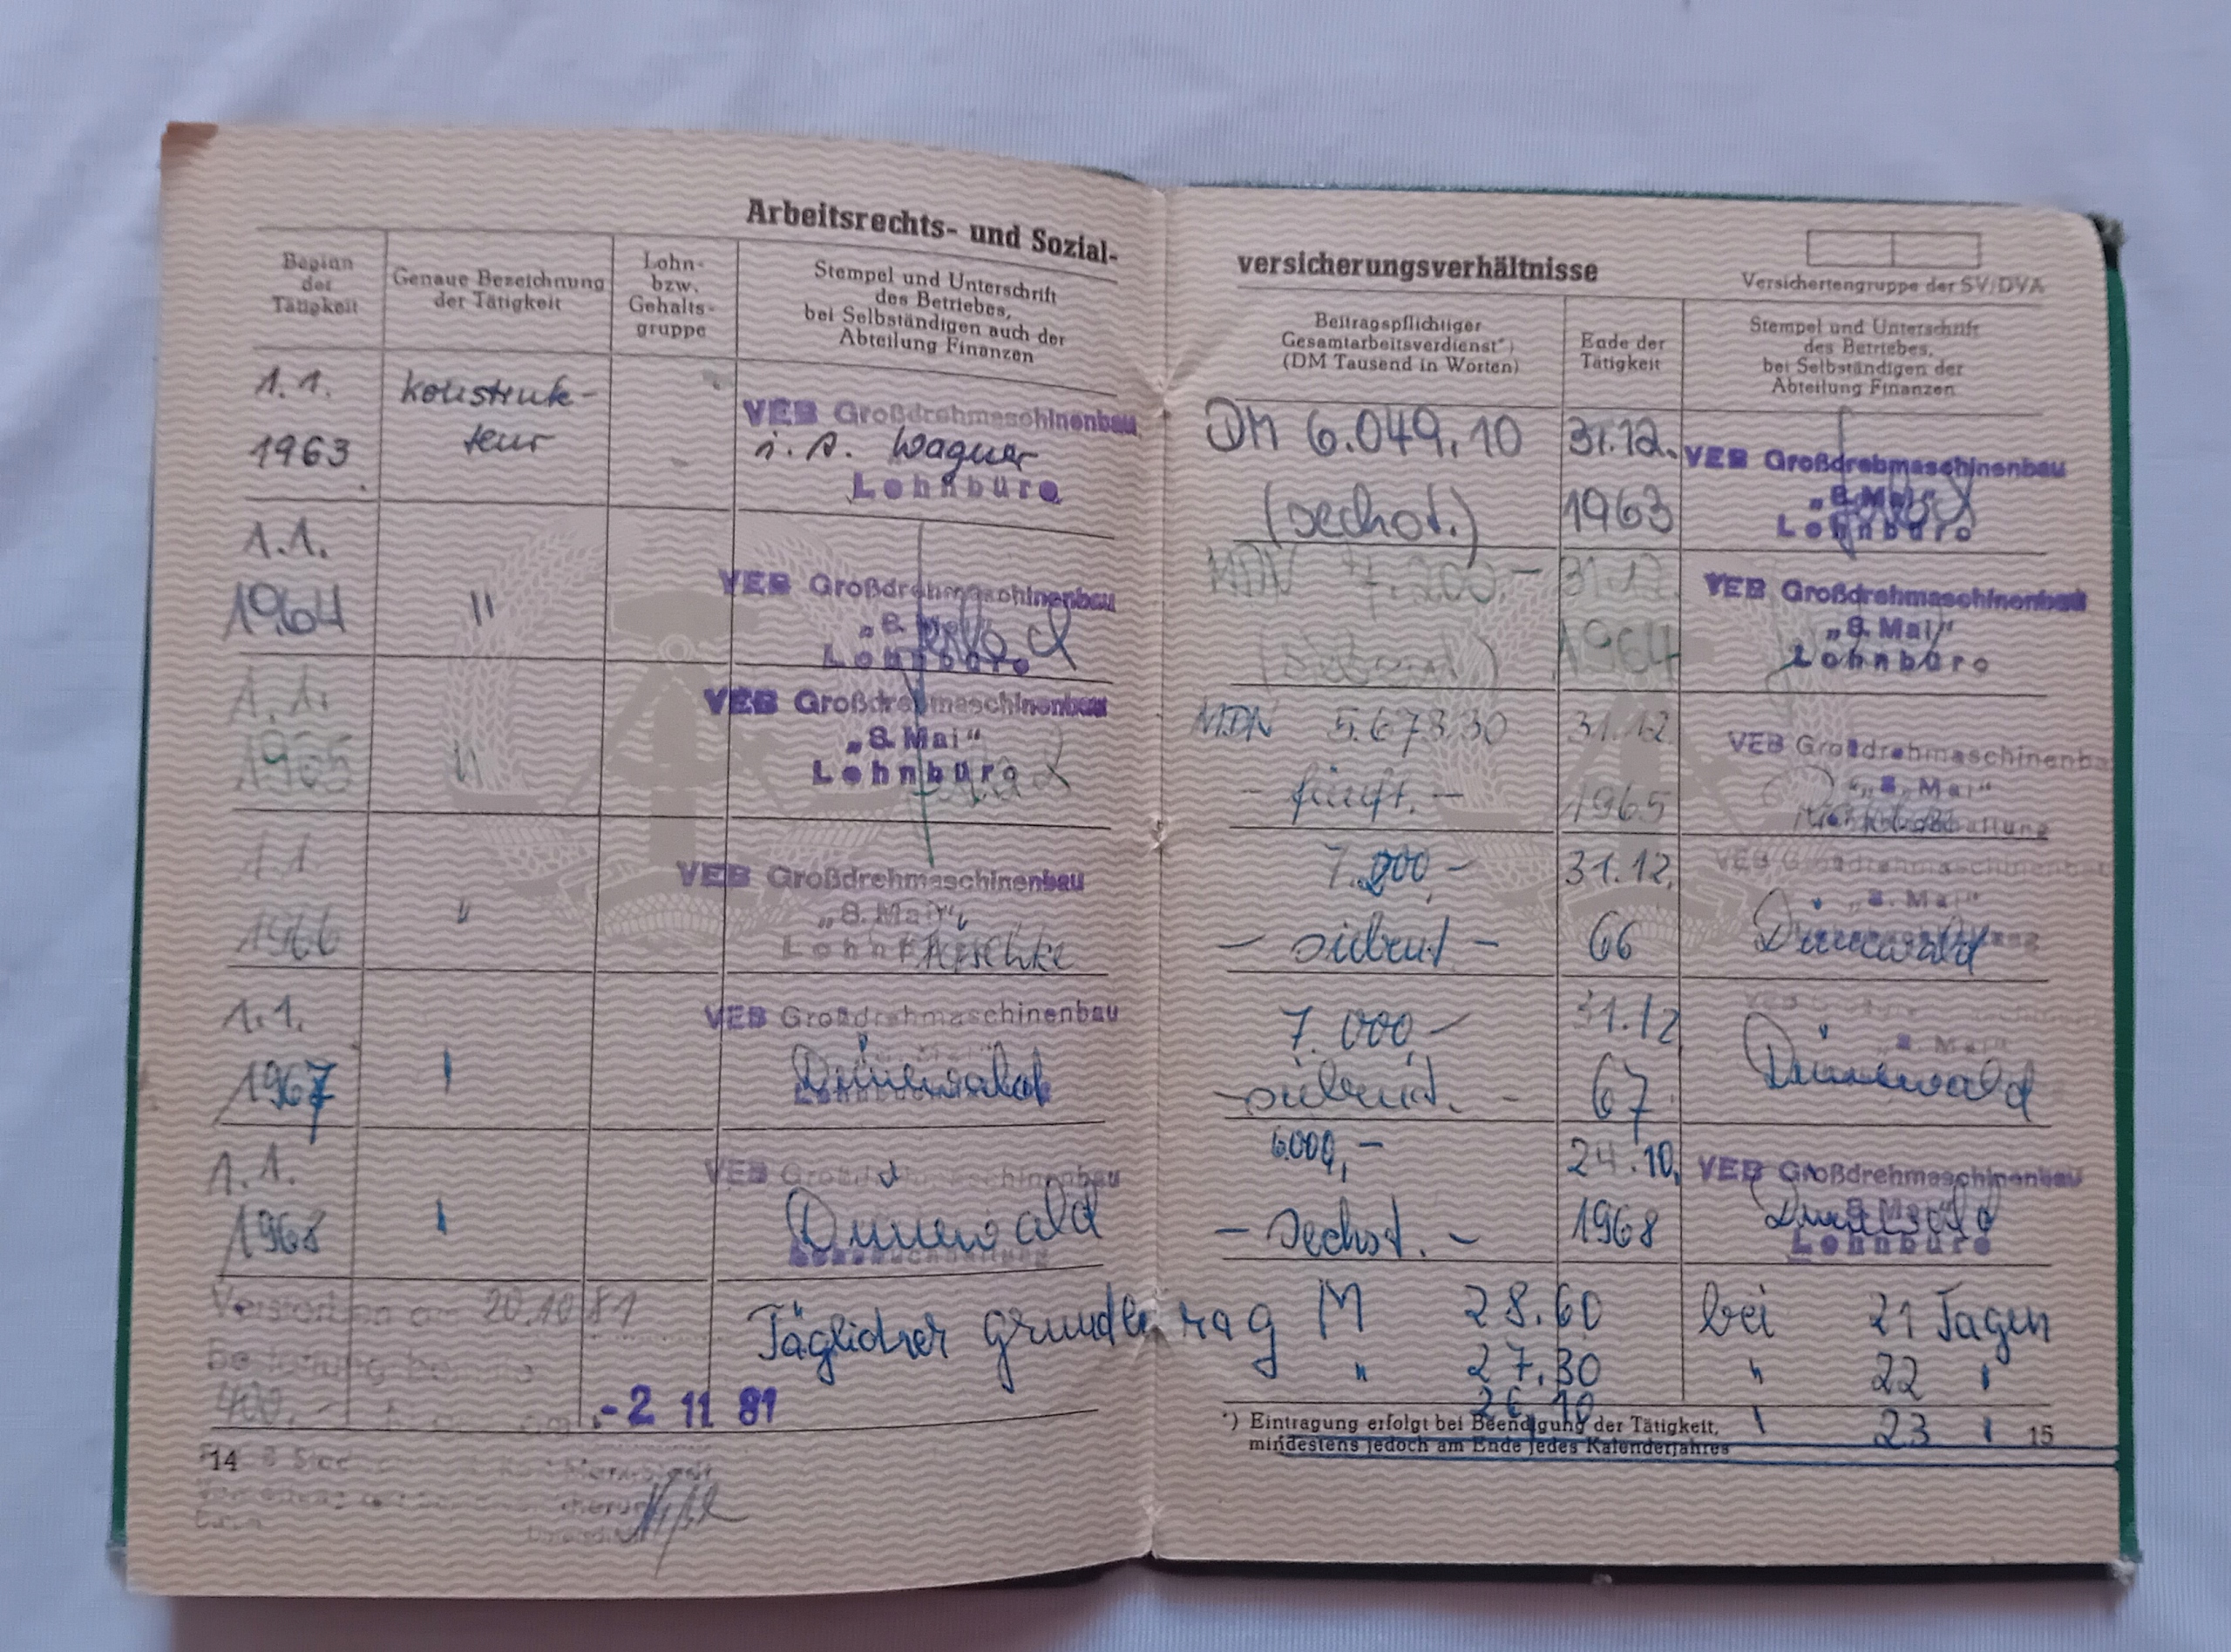 Arbeitsrechts- und Sozial-
Beginn
der
Tätigkeit
Genaue Bezeichnung
der Tätigkeit
Lohn-
bzw.
Gehalts-
gruppe
Stempel und Unterschrift
des Betriebes,
bei Selbständigen auch der
Abteilung Finanzen
1.1.
1963
Konstruk-
teur
VEB Großdrehmaschinenbau
i. A. Wagner
Lohnbüro
1.1.
1964
"
VEB Großdrehmaschinenbau
„8. Mai“
Lohnbüro
1.1.
1965
"
VEB Großdrehmaschinenbau
„8. Mai“
Lohnbüro
1.1
1966
"
VEB Großdrehmaschinenbau
„8. Mai“
1.1.
1967
VEB Großdrehmaschinenbau
Dünewald
1.1.
1968
VEB Großdrehmaschinenbau
Dünewald
Verstorben am 20.10.81
400,-
-2 11 81
14
versicherungsverhältnisse
Versichertengruppe der SV/DVA
Beitragspflichtiger
Gesamtarbeitsverdienst*)
(DM Tausend in Worten)
Ende der
Tätigkeit
Stempel und Unterschrift
des Betriebes,
bei Selbständigen der
Abteilung Finanzen
DM 6.049,10
(sechst.)
31.12.
1963
VEB Großdrehmaschinenbau
„8. Mai“
Lohnbüro
MDN
31.12.
1964
VEB Großdrehmaschinenbau
„8. Mai“
Lohnbüro
MDN 5.673,30
- fünft. -
31.12
1965
VEB Großdrehmaschinenbau
„8. Mai“
7.000,-
- siebent -
31.12.
66
VEB Großdrehmaschinenbau
„8. Mai“
Dünewald
7.000,-
- siebent. -
31.12
67
Dünewald
6.000,-
- sechst. -
24.10.
1968
VEB Großdrehmaschinenbau
Dünewald
Lohnbüro
Täglicher Grundbetrag M 28.60 bei 21 Tagen
" 27.30 " 22 "
26,10 " 23 "
*) Eintragung erfolgt bei Beendigung der Tätigkeit,
mindestens jedoch am Ende jedes Kalenderjahres
15